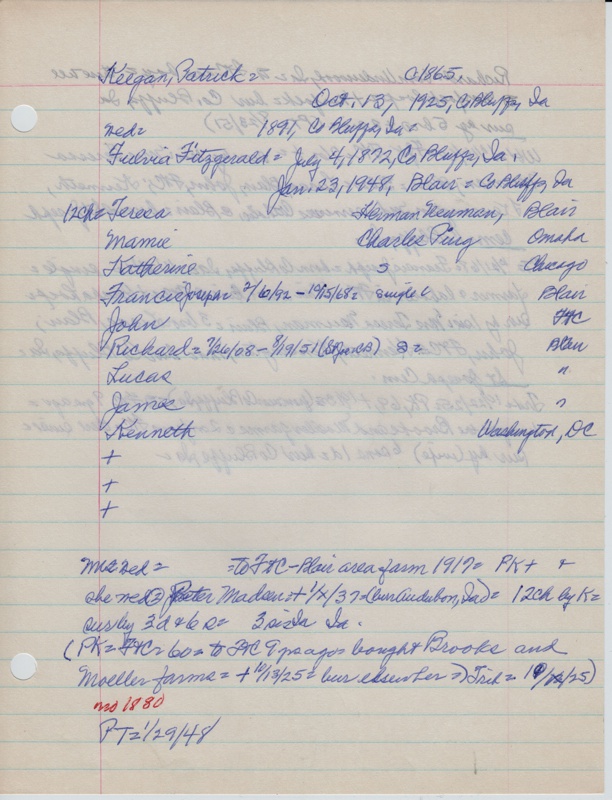 Keegan, Patrick = c1865,
Oct. 13, 1925, Co Bluffs, Ia
wed = 1891, Co Bluffs, Ia =
Fulvia Fitzgerald = July 4, 1872, Co Bluffs, Ia.
Jan. 23, 1948, Blair = Co Bluffs, Ia
12ch = Teresa Herman Neuman, Blair
Mamie Charles Ping Omaha
Katherine S Chicago
Francis Joseph = 2/6/92 - 10/5/68 = single Blair
John FtC
Richard = 7/26/08 - 8/19/51 (StJosCB) S = Blair
Lucas "
James "
Kenneth Washington, DC
+
+
+
M & wed = = to FtC-Blair area farm 1917 = PK + +
she wed ② Peter Madsen = + 1/x/37 = (bur Audubon, Ia) = 12ch by K =
sur by 3d & 6s = 3 sis Ia Ia.
(PK = FtC = 60 = to FtC 9 ys ago = bought Brooks and
Moeller farms = + 10/13/25 = bur elsewhere =) Trib = 10/ /25)
no 1880
PT = 1/29/48